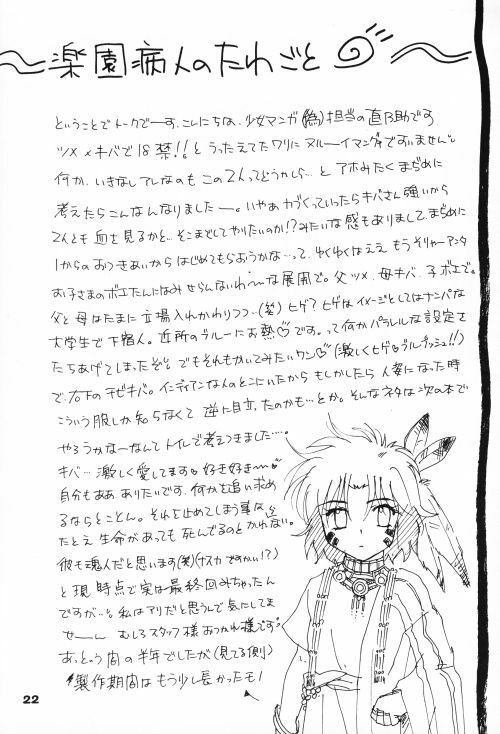 〜楽園病人のたわごと〜
ということでトークでーす。こんにちは、少女マンガ(偽)担当の直乃助です
ツメ×キバで18禁!!とうったえてたワリにヌルーイマンガですいません。
何か、いきなしアレなのもこの2人ってどうかしら…とアホみたくまじめに
考えたらこんなんなりましたー。いやぁ力づくっていったらキバさん強いから
2人とも血を見るかと…そこまでしてやりたいのか!?みたいな感もありまして。まじめに
1からのおつきあいからはじめてもらおうかな…って、ゆくゆくはええもうそりゃーアンタ
お子さまのボエたんになみせらんないわ〜な展開で。父ツメ、母キバ、子ボエで。
父と母はたまに立場入れかわりつつ…(笑)ヒゲ?ヒゲはイメージとしてはナンパな
大学生で下宿人。近所のブルーにお熱♡です。って何かパラレルな設定を
たちあげてしまったぞ。でもそれもかいてみたいワン♡(激しくヒゲ♡ブループッシュ!!)
で、右下のチビキバ。インディアンな人のとこにいたからもしかしたら人姿になった時
こういう服しか知らなくて逆に目立ったのかも…とか。そんなネタは次の本で
やろうかなーなんてトイレで考えつきました…。
キバ…激しく愛してます♡好き好き〜♡
自分もああありたいです。何かを追い求め
るならとことん。それを止めてしまう事は
たとえ生命があっても死んでるのとかわんない。
彼も魂人だと思います(笑)(ナスカですかい!?)
と現時点で実は最終回みちゃったん
ですが…。私はアリだと思うんで気にしてま
せーん むしろスタッフ様おつかれ様です。
あっとゆう間の半年でしたが(見てる側)
製作期間はもう少し長かったも!
22